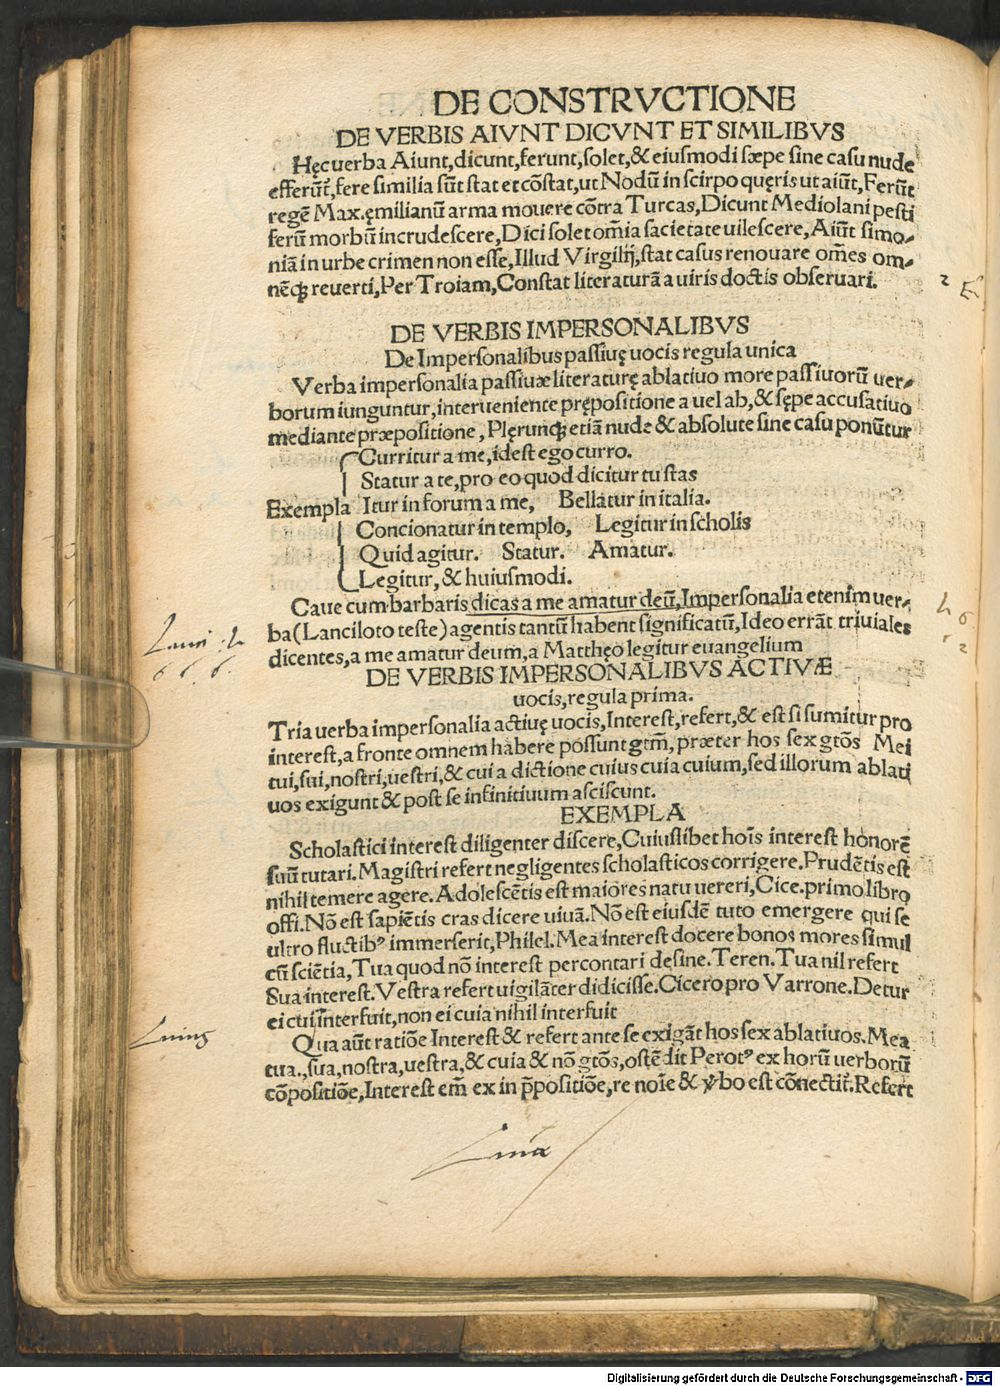 DE CONSTRVCTIONE
DE VERBIS AIVNT DICVNT ET SIMILIBVS
Hęc verba Aiunt, dicunt, ferunt, solet, & eiusmodi sæpe sine casu nude
efferūt, fere similia sūt stat et cōstat, ut Nodū in scirpo quęris ut aiūt, Ferūt
regē Max. ęmilianū arma mouere cōtra Turcas, Dicunt Mediolani pesti
ferū morbū incrudescere, Dici solet omīa sacietate uilescere, Aiūt simo-
niā in urbe crimen non esse, Illud Virgilij, stat casus renouare omēs om-
nēq; reuerti, Per Troiam, Constat literaturā a uiris doctis obseruari.
DE VERBIS IMPERSONALIBVS
De Impersonalibus passiuę uocis regula unica
Verba impersonalia passiuæ literaturę ablatiuo more passiuorū uer-
borum iunguntur, interueniente prępositione a uel ab, & sępe accusatiuo
mediante præpositione, Plęrunq; etiā nude & absolute sine casu ponūtur
Curritur a me, idest ego curro.
Statur a te, pro eo quod dicitur tu stas
Exempla Itur in forum a me, Bellatur in italia.
Concionatur in templo, Legitur in scholis
Quid agitur. Statur. Amatur.
Legitur, & huiusmodi.
Caue cum barbaris dicas a me amatur deū, Impersonalia etenim uer-
ba (Lanciloto teste) agentis tantū habent significatū, Ideo errāt triuiales
dicentes, a me amatur deum, a Matthęo legitur euangelium
DE VERBIS IMPERSONALIBVS ACTIVÆ
uocis, regula prima.
Tria uerba impersonalia actiuę uocis, Interest, refert, & est si sumitur pro
interest, a fronte omnem habere possunt gtm̄, præter hos sex gtōs Mei
tui, sui, nostri, uestri, & cui a dictione cuius cuia cuium, sed illorum ablati
uos exigunt & post se infinitiuum asciscunt.
EXEMPLA
Scholastici interest diligenter discere, Cuiuslibet hoīs interest honorē
suū tutari. Magistri refert negligentes scholasticos corrigere. Prudētis est
nihil temere agere. Adolescētis est maiores natu uereri, Cice. primo libro
offi. Nō est sapiētis cras dicere uiuā. Nō est eiusdē tuto emergere qui se
ultro fluctibꝰ immerserit, Philel. Mea interest docere bonos mores simul
cū sciētia, Tua quod nō interest percontari desine. Teren. Tua nil refert
Sua interest. Vestra refert uigilāter didicisse. Cicero pro Varrone. Detur
ei cui īnterfuit, non ei cuia nihil interfuit
Qua aūt ratiōe Interest & refert ante se exigāt hos sex ablatiuos. Mea
tua., sua, nostra, uestra, & cuia & nō gtōs, ostēdit Perotꝰ ex horū uerborū
cōpositiōe, Interest em̄ ex in p̄positiōe, re noīe & ꝟbo est cōnectit. Refert
6 6 6.
Digitalisierung gefördert durch die Deutsche Forschungsgemeinschaft - DFG